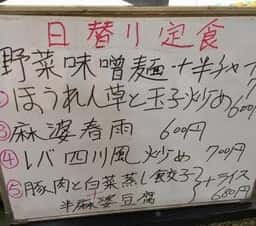 日替り定食
野菜味噌麺+半チャ
ほうれん草と玉子炒め 600
③麻婆春雨 600円
④レバ四川風炒め 700円
⑤豚肉と白菜蒸し餃子 +ライス
半麻婆豆腐 680円